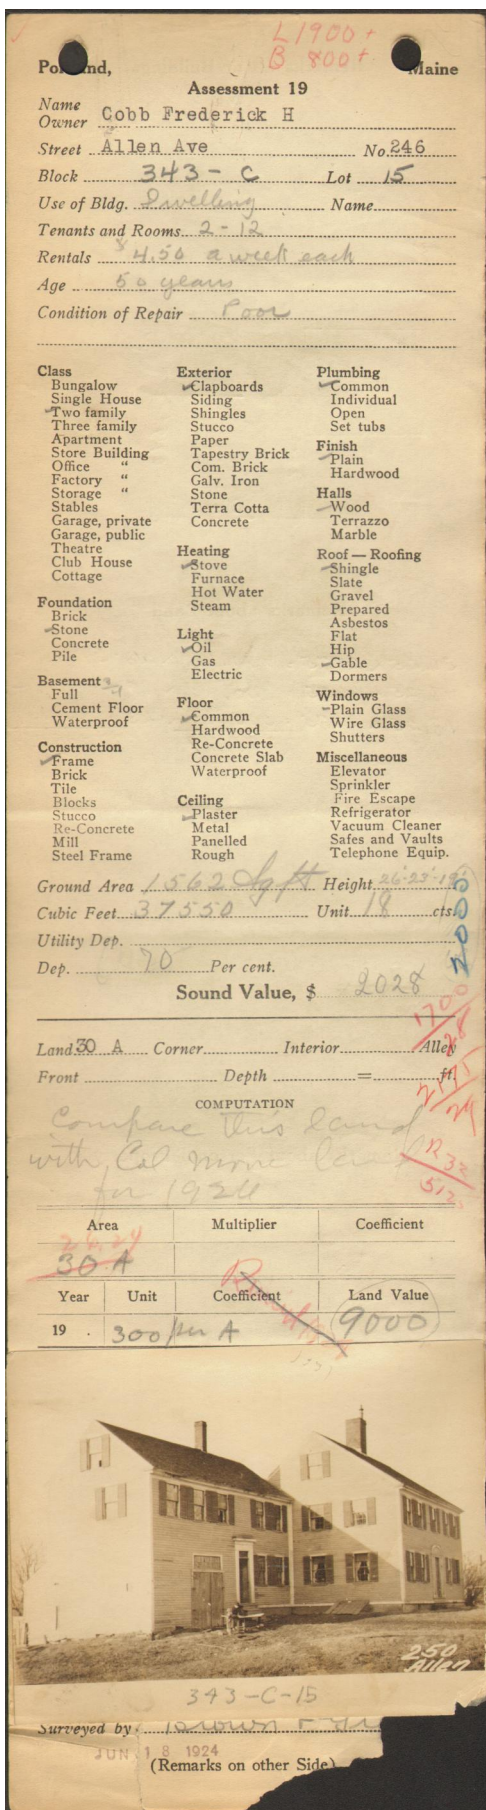 L1900+
B 800+
Portland, Maine
Assessment 19
Name
Owner Cobb Frederick H
Street Allen Ave No. 246
Block 343 - C Lot 15
Use of Bldg. Dwelling Name
Tenants and Rooms 2-12
Rentals $4.50 a week each
Age 50 years
Condition of Repair Poor
Class
Bungalow
Single House
Two family
Three family
Apartment
Store Building
Office "
Factory "
Storage "
Stables
Garage, private
Garage, public
Theatre
Club House
Cottage
Foundation
Brick
Stone
Concrete
Pile
Basement
Full
Cement Floor
Waterproof
Construction
Frame
Brick
Tile
Blocks
Stucco
Re-Concrete
Mill
Steel Frame
Exterior
Clapboards
Siding
Shingles
Stucco
Paper
Tapestry Brick
Com. Brick
Galv. Iron
Stone
Terra Cotta
Concrete
Heating
Stove
Furnace
Hot Water
Steam
Light
Oil
Gas
Electric
Floor
Common
Hardwood
Re-Concrete
Concrete Slab
Waterproof
Ceiling
Plaster
Metal
Panelled
Rough
Plumbing
Common
Individual
Open
Set tubs
Finish
Plain
Hardwood
Halls
Wood
Terrazzo
Marble
Roof — Roofing
Shingle
Slate
Gravel
Prepared
Asbestos
Flat
Hip
Gable
Dormers
Windows
Plain Glass
Wire Glass
Shutters
Miscellaneous
Elevator
Sprinkler
Fire Escape
Refrigerator
Vacuum Cleaner
Safes and Vaults
Telephone Equip.
Ground Area 1562 Sq ft Height
Cubic Feet 37550 Unit 18 cts.
2000
Utility Dep.
Dep. 70 Per cent.
Sound Value, $ 2028
1700
28
Land 30 A Corner Interior Alley
Front Depth = ft.
2175
29
COMPUTATION
Compare this land
with Col land
for 1924
R 32
512
Area Multiplier Coefficient
26.24
30 A
Year Unit Coefficient Land Value
19 . 300 per A 9000
250
Allen
343-C-15
Surveyed by Brown
JUN 18 1924
(Remarks on other Side)